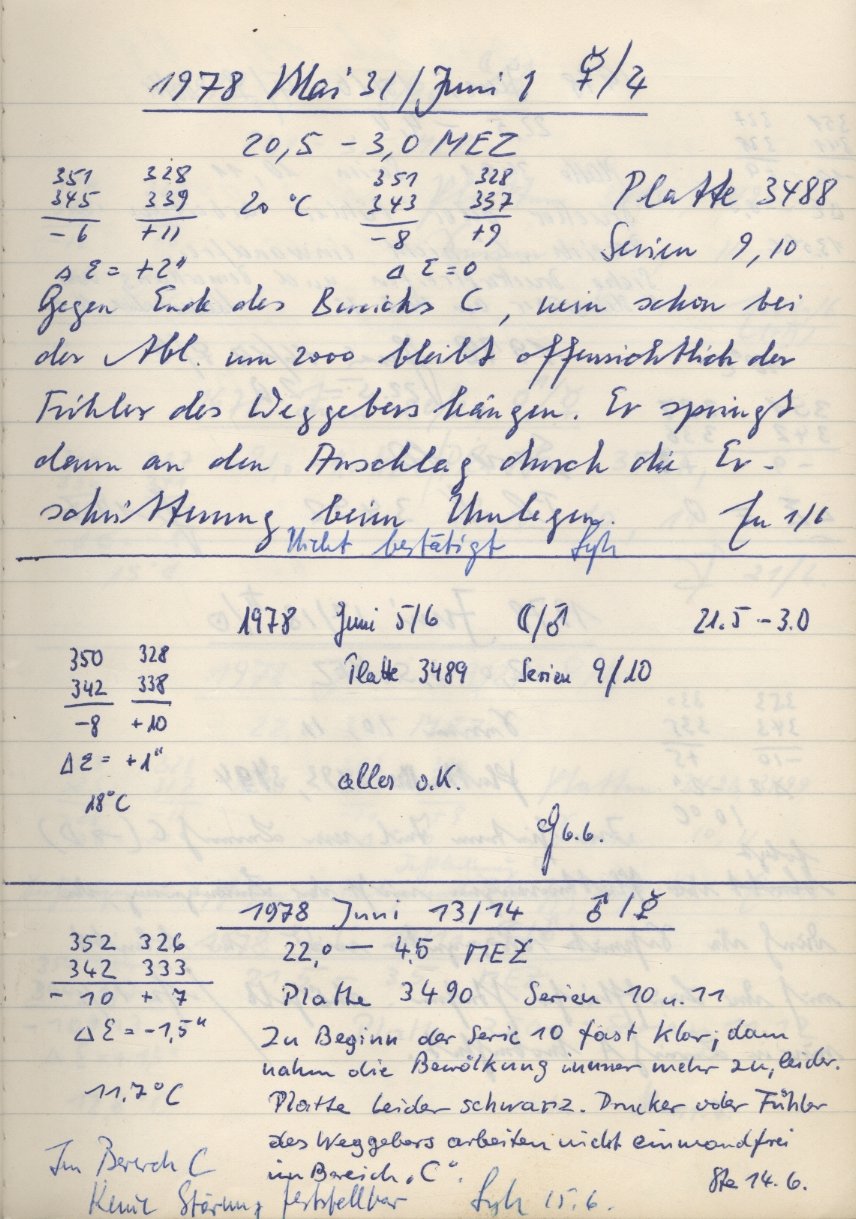 1978 Mai 31/Juni 1 ☿/♃
20,5 – 3,0 MEZ
351 328 351 328
345 339 20 °C 343 337 Platte 3488
-6 +11 -8 +9 Serien 9, 10
Δ ε = +2" Δ ε = 0
Gegen Ende des Bereichs C, nein schon bei
der Abl. um 2000 bleibt offensichtlich der
Fühler des Weggebers hängen. Er springt
dann an den Anschlag durch die Er-
schütterung beim Umlegen. 1/6
Nicht bestätigt
1978 Juni 5/6 ☾/♂ 21.5 – 3.0
350 328 Platte 3489 Serien 9/10
342 338
-8 +10
Δ ε = +1"
18°C alles o.K.
6.6.
1978 Juni 13/14 ♂/☿
352 326 22,0 — 4,5 MEZ
342 333
- 10 + 7 Platte 3490 Serien 10 u. 11
Δ ε = -1,5" Zu Beginn der Serie 10 fast klar; dann
nahm die Bewölkung immer mehr zu, leider.
11,7°C Platte leider schwarz. Drucker oder Fühler
des Weggebers arbeiten nicht einwandfrei
im Bereich „C". Ste 14. 6.
Im Bereich C
Keine Störung feststellbar 15. 6.